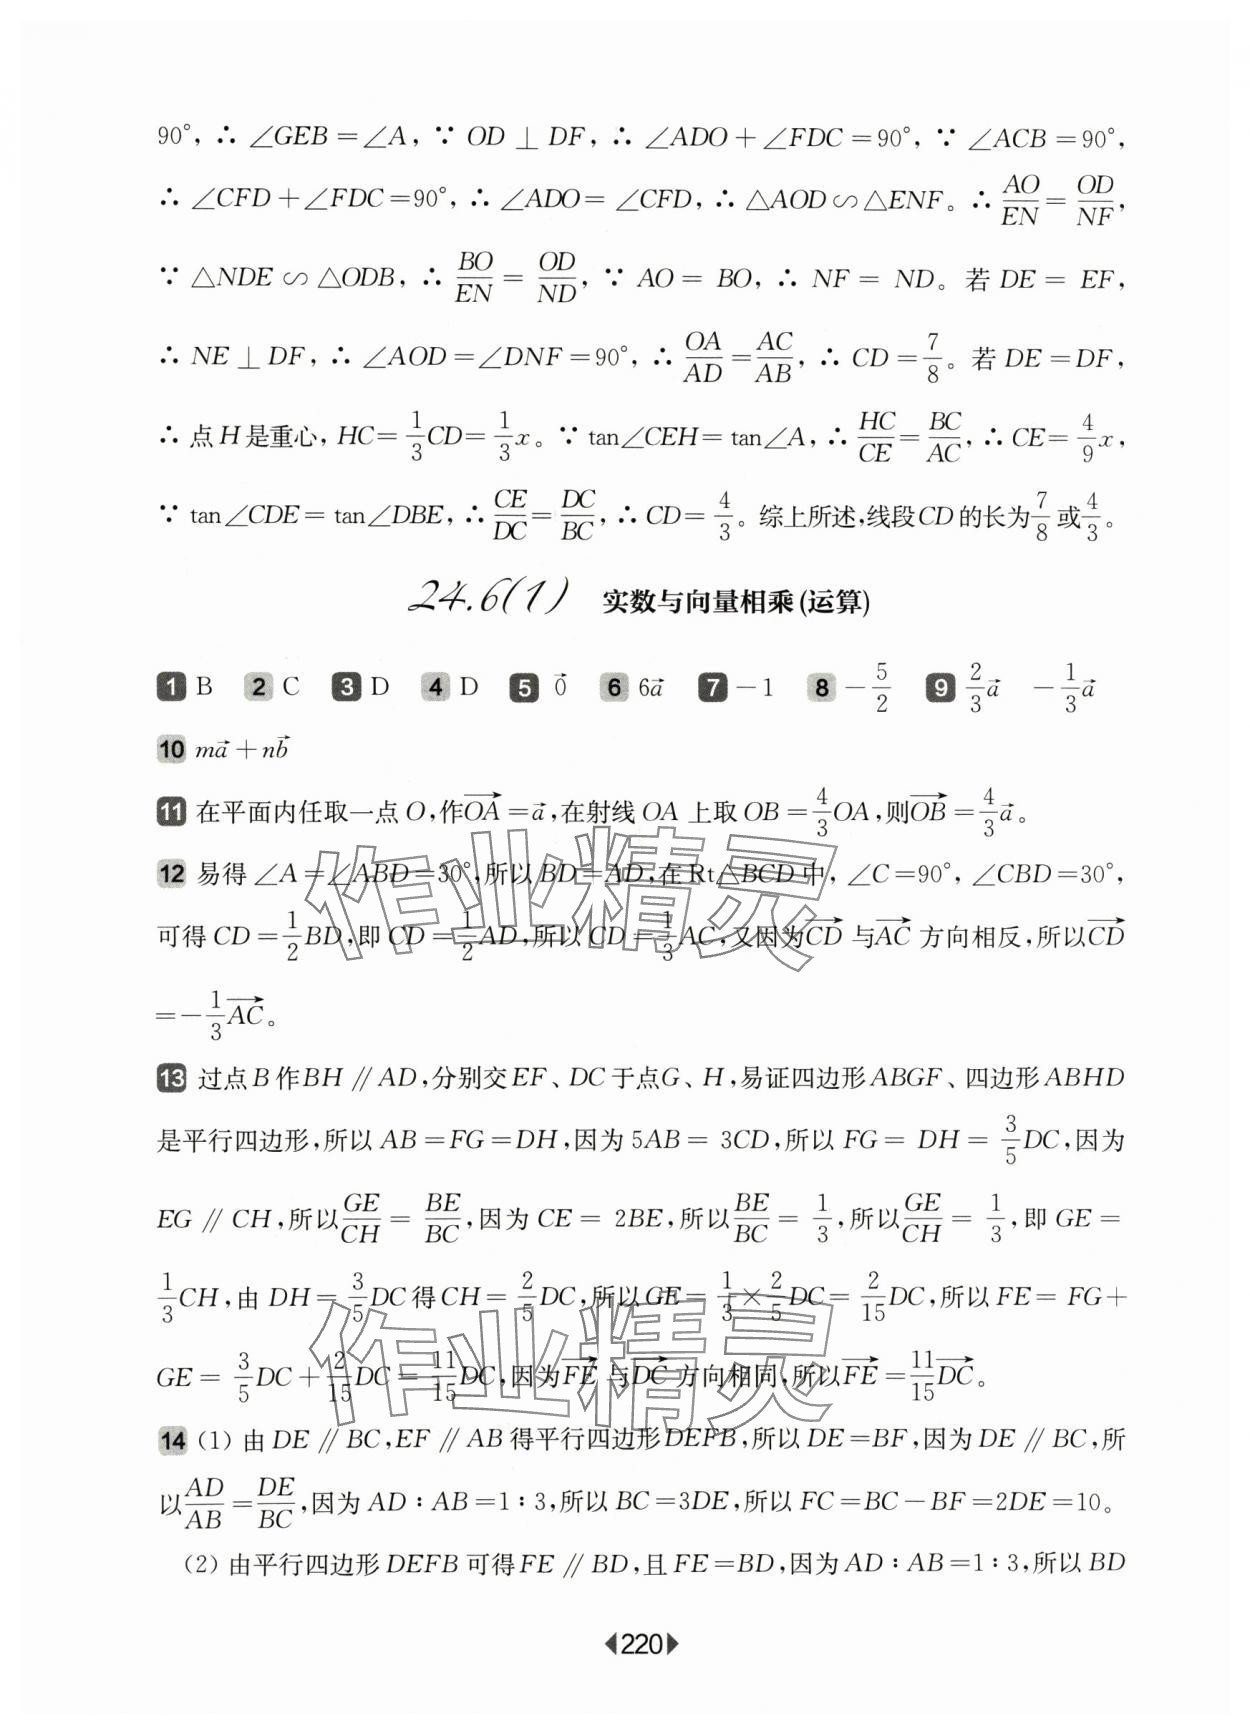 90°, ∴ ∠GEB = ∠A, ∵ OD ⊥ DF, ∴ ∠ADO + ∠FDC = 90°, ∵ ∠ACB = 90°,
∴ ∠CFD + ∠FDC = 90°, ∴ ∠ADO = ∠CFD, ∴ △AOD ∽ △ENF。∴ AO/EN = OD/NF,
∵ △NDE ∽ △ODB, ∴ BO/EN = OD/ND, ∵ AO = BO, ∴ NF = ND。若 DE = EF,
∴ NE ⊥ DF, ∴ ∠AOD = ∠DNF = 90°, ∴ OA/AD = AC/AB, ∴ CD = 7/8。若 DE = DF,
∴ 点 H 是重心, HC = 1/3 CD = 1/3 x。∵ tan∠CEH = tan∠A, ∴ HC/CE = BC/AC, ∴ CE = 4/9 x,
∵ tan∠CDE = tan∠DBE, ∴ CE/DC = DC/BC, ∴ CD = 4/3。综上所述,线段 CD 的长为 7/8 或 4/3。
24.6(1) 实数与向量相乘(运算)
1 B 2 C 3 D 4 D 5 0⃗ 6 6a⃗ 7 −1 8 −5/2 9 2/3 a⃗ −1/3 a⃗
10 ma⃗ + nb⃗
11 在平面内任取一点 O,作 OA⃗ = a⃗,在射线 OA 上取 OB = 4/3 OA,则 OB⃗ = 4/3 a⃗。
12 易得 ∠A = ∠ABD = 30°,所以 BD = AD,在 Rt△BCD 中, ∠C = 90°, ∠CBD = 30°,
可得 CD = 1/2 BD,即 CD = 1/2 AD,所以 CD = 1/3 AC,又因为 CD⃗ 与 AC⃗ 方向相反,所以 CD⃗
= −1/3 AC⃗。
13 过点 B 作 BH ∥ AD,分别交 EF、DC 于点 G、H,易证四边形 ABGF、四边形 ABHD
是平行四边形,所以 AB = FG = DH,因为 5AB = 3CD,所以 FG = DH = 3/5 DC,因为
EG ∥ CH,所以 GE/CH = BE/BC,因为 CE = 2BE,所以 BE/BC = 1/3,所以 GE/CH = 1/3,即 GE =
1/3 CH,由 DH = 3/5 DC 得 CH = 2/5 DC,所以 GE = 1/3 × 2/5 DC = 2/15 DC,所以 FE = FG +
GE = 3/5 DC + 2/15 DC = 11/15 DC,因为 FE⃗ 与 DC⃗ 方向相同,所以 FE⃗ = 11/15 DC⃗。
14 (1) 由 DE ∥ BC, EF ∥ AB 得平行四边形 DEFB,所以 DE = BF,因为 DE ∥ BC,所
以 AD/AB = DE/BC,因为 AD : AB = 1 : 3,所以 BC = 3DE,所以 FC = BC − BF = 2DE = 10。
(2) 由平行四边形 DEFB 可得 FE ∥ BD,且 FE = BD,因为 AD : AB = 1 : 3,所以 BD
220
作业精灵
作业精灵